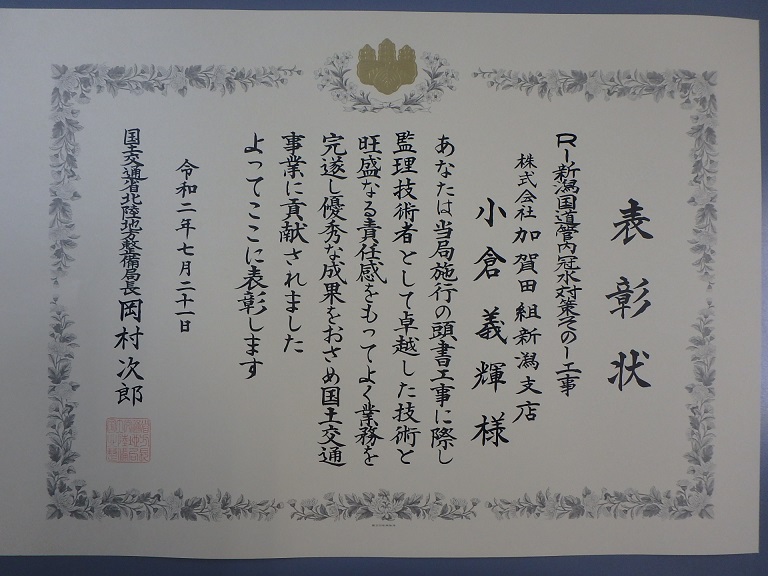 表彰状
R1新潟国道管内冠水対策その1工事
株式会社 加賀田組新潟支店
小倉義輝様
あなたは当局施行の頭書工事に際し
監理技術者として卓越した技術と
旺盛なる責任感をもってよく業務を
完遂し優秀な成果をおさめ国土交通
事業に貢献されました
よってここに表彰します
令和二年七月二十一日
国土交通省北陸地方整備局長 岡村次郎